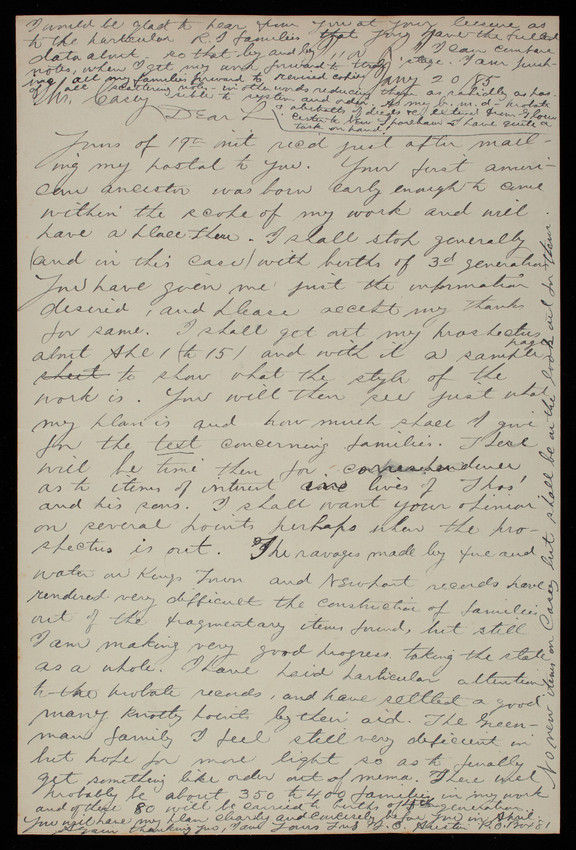 I would be glad to hear from you at your leisure as
to the particular R.I families that you have the fullest
data about. so that by and by I can compare
notes, when I get my work forward to that stage. I am push-
ing all my families forward to revised copies
of all scattering notes - in other words reducing them as rapidly as pos-
sible to system and order. As my b. m. d - probate
& abstracts of deeds &c extend from
to New Shoreham I have quite a
task on hand
Jany 20 85
Mr. Casey
Dear Sir
Yours of 19th inst rec'd just after mail-
ing my postal to you. Your first ameri-
can ancestor was born early enough to come
within the scope of my work and will
have a place there. I shall stop generally
(and in this case) with births of 3d generation
You have given me just the information
desired, and please accept my thanks
for same. I shall get out my prospectus
about Feb 1 (to 15) and with it a sample page
sheet to show what the style of the
work is. You will then see just what
my plan is and how much shall I give
for the text concerning families. There
will be time then for correspondence
as to items of interest lives of Thos'
and his sons. I shall want your opinion
on several points perhaps when the pro-
spectus is out. The ravages made by fire and
water on Kings Town and Newport records have
rendered very difficult the construction of families
out of the fragmentary items found, but still
I am making very good progress taking the state
as a whole. I have paid particular attention
to the probate records, and have settled a good
many knotty points by their aid. The Green-
man family I feel still very deficient in
but hope for more light so as to finally
get something like order out of mema. There will
probably be about 350 to 400 families in my work
and of these 80 will be carried to births of 4th generation.
You will have my plan clearly and concisely before you in
Again thanking you, I am Yours Truly J. O. Austin P.O. Box 81
No new items on Casey but shall be on the look out for them